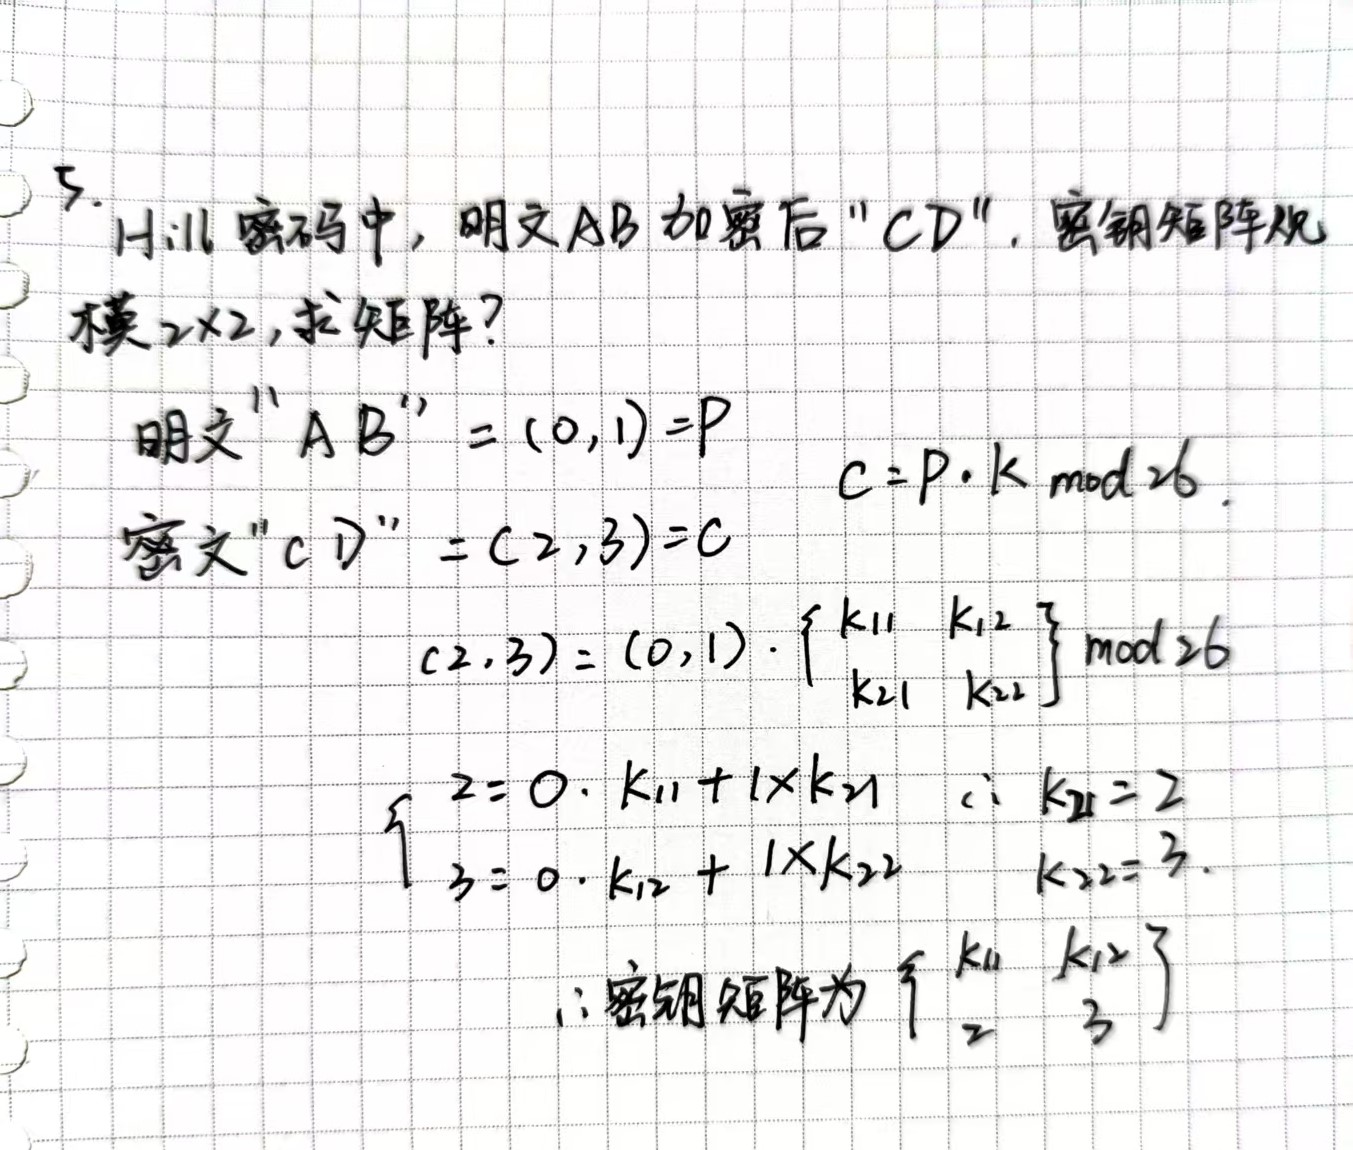 5.
Hill 密码中, 明文AB 加密后 "CD". 密钥矩阵规
模 2×2, 求矩阵?
明文"AB" = (0,1) = P
C = P·K mod 26.
密文"CD" = (2,3) = C
(2,3) = (0,1)·{ k11 k12
k21 k22 } mod 26
{ 2 = 0·k11 + 1×k21 ∴ k21 = 2
3 = 0·k12 + 1×k22 k22 = 3.
∴ 密钥矩阵为 { k11 k12
2 3 }